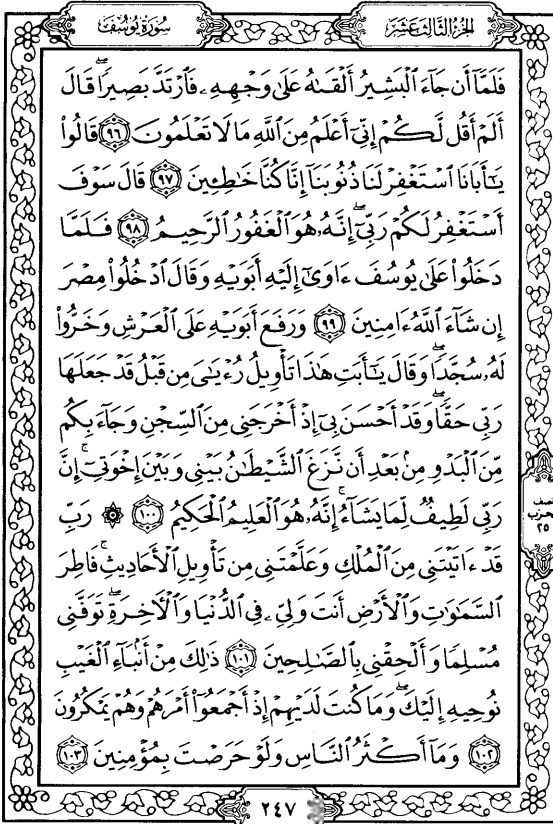 الجزء الثالث عشر
سورة يوسف
فَلَمَّا أَن جَاءَ ٱلْبَشِيرُ أَلْقَىٰهُ عَلَىٰ وَجْهِهِۦ فَٱرْتَدَّ بَصِيرًاۖ قَالَ
أَلَمْ أَقُل لَّكُمْ إِنِّىٓ أَعْلَمُ مِنَ ٱللَّهِ مَا لَا تَعْلَمُونَ ٩٦ قَالُوا۟
يَـٰٓأَبَانَا ٱسْتَغْفِرْ لَنَا ذُنُوبَنَآ إِنَّا كُنَّا خَـٰطِـِٔينَ ٩٧ قَالَ سَوْفَ
أَسْتَغْفِرُ لَكُمْ رَبِّىٓۖ إِنَّهُۥ هُوَ ٱلْغَفُورُ ٱلرَّحِيمُ ٩٨ فَلَمَّا
دَخَلُوا۟ عَلَىٰ يُوسُفَ ءَاوَىٰٓ إِلَيْهِ أَبَوَيْهِ وَقَالَ ٱدْخُلُوا۟ مِصْرَ
إِن شَآءَ ٱللَّهُ ءَامِنِينَ ٩٩ وَرَفَعَ أَبَوَيْهِ عَلَى ٱلْعَرْشِ وَخَرُّوا۟
لَهُۥ سُجَّدًاۖ وَقَالَ يَـٰٓأَبَتِ هَـٰذَا تَأْوِيلُ رُءْيَـٰىَ مِن قَبْلُ قَدْ جَعَلَهَا
رَبِّى حَقًّاۖ وَقَدْ أَحْسَنَ بِىٓ إِذْ أَخْرَجَنِى مِنَ ٱلسِّجْنِ وَجَآءَ بِكُم
مِّنَ ٱلْبَدْوِ مِنۢ بَعْدِ أَن نَّزَغَ ٱلشَّيْطَـٰنُ بَيْنِى وَبَيْنَ إِخْوَتِىٓۚ إِنَّ
رَبِّى لَطِيفٌ لِّمَا يَشَآءُۚ إِنَّهُۥ هُوَ ٱلْعَلِيمُ ٱلْحَكِيمُ ١٠٠ ۞ رَبِّ
قَدْ ءَاتَيْتَنِى مِنَ ٱلْمُلْكِ وَعَلَّمْتَنِى مِن تَأْوِيلِ ٱلْأَحَادِيثِۚ فَاطِرَ
ٱلسَّمَـٰوَٰتِ وَٱلْأَرْضِ أَنتَ وَلِىِّۦ فِى ٱلدُّنْيَا وَٱلْـَٔاخِرَةِۖ تَوَفَّنِى
مُسْلِمًا وَأَلْحِقْنِى بِٱلصَّـٰلِحِينَ ١٠١ ذَٰلِكَ مِنْ أَنۢبَآءِ ٱلْغَيْبِ
نُوحِيهِ إِلَيْكَۖ وَمَا كُنتَ لَدَيْهِمْ إِذْ أَجْمَعُوٓا۟ أَمْرَهُمْ وَهُمْ يَمْكُرُونَ
١٠٢ وَمَآ أَكْثَرُ ٱلنَّاسِ وَلَوْ حَرَصْتَ بِمُؤْمِنِينَ ١٠٣
نصف
الحزب
٢٥
٢٤٧